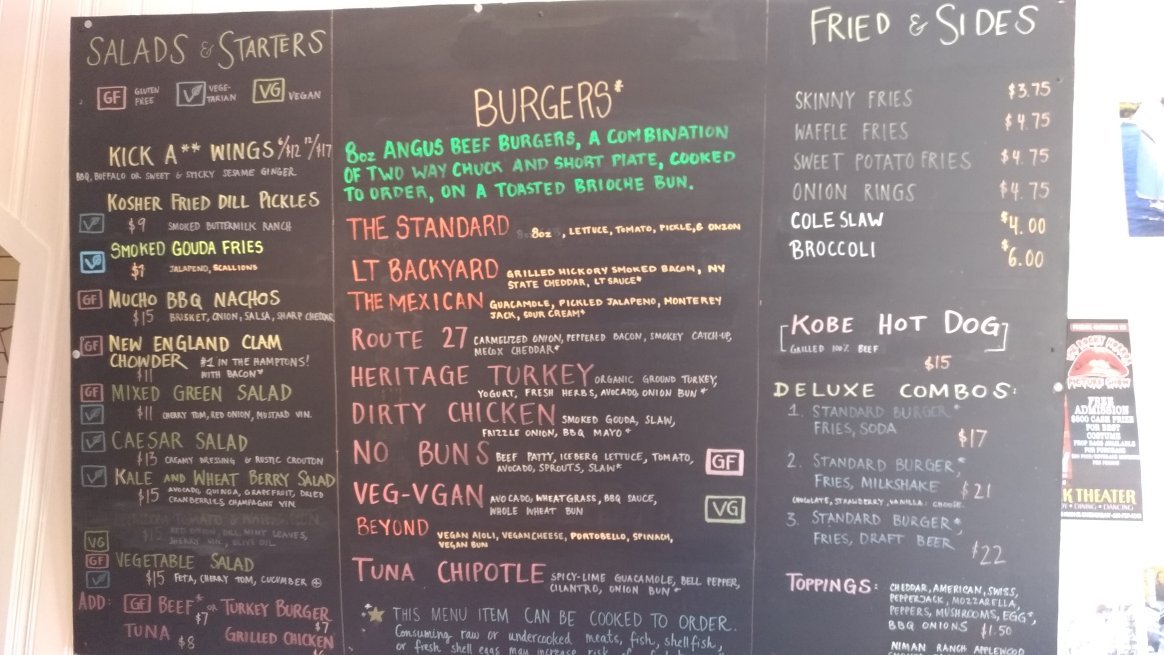 SALADS & STARTERS
GF GLUTEN FREE VEGE-TARIAN VG VEGAN
KICK A** WINGS 6/$12 12/$17
BBQ, BUFFALO OR SWEET & STICKY SESAME GINGER
KOSHER FRIED DILL PICKLES
$9 SMOKED BUTTERMILK RANCH
SMOKED GOUDA FRIES
JALAPENO, SCALLIONS
GF MUCHO BBQ NACHOS
$15 BRISKET, ONION, SALSA, SHARP CHEDDAR
GF NEW ENGLAND CLAM
CHOWDER #1 IN THE HAMPTONS!
$11 WITH BACON*
GF MIXED GREEN SALAD
$11 CHERRY TOM, RED ONION, MUSTARD VIN.
CAESAR SALAD
$13 CREAMY DRESSING & RUSTIC CROUTON
KALE AND WHEAT BERRY SALAD
$15 AVOCADO, QUINOA, GRAPEFRUIT, DRIED
CRANBERRIES, CHAMPAGNE VIN.
TOMATO &
MINT LEAVES,
VG SHERRY VIN., OLIVE OIL
GF VEGETABLE SALAD
$15 FETA, CHERRY TOM, CUCUMBER
ADD: GF BEEF* OR TURKEY BURGER
$7 $7
TUNA $8 GRILLED CHICKEN
BURGERS*
8oz ANGUS BEEF BURGERS, A COMBINATION
OF TWO WAY CHUCK AND SHORT PLATE, COOKED
TO ORDER, ON A TOASTED BRIOCHE BUN.
THE STANDARD 8oz, LETTUCE, TOMATO, PICKLE, & ONION
LT BACKYARD GRILLED HICKORY SMOKED BACON, NY
STATE CHEDDAR, LT SAUCE*
THE MEXICAN GUACAMOLE, PICKLED JALAPENO, MONTEREY
JACK, SOUR CREAM*
ROUTE 27 CARMELIZED ONION, PEPPERED BACON, SMOKEY CATCH-UP,
MECOX CHEDDAR*
HERITAGE TURKEY ORGANIC GROUND TURKEY,
YOGURT, FRESH HERBS, AVOCADO, ONION BUN*
DIRTY CHICKEN SMOKED GOUDA, SLAW,
FRIZZLE ONION, BBQ MAYO*
NO BUNS BEEF PATTY, ICEBERG LETTUCE, TOMATO,
AVOCADO, SPROUTS, SLAW* GF
VEG-VGAN AVOCADO, WHEATGRASS, BBQ SAUCE,
WHOLE WHEAT BUN VG
BEYOND VEGAN AIOLI, VEGAN CHEESE, PORTOBELLO, SPINACH,
VEGAN BUN
TUNA CHIPOTLE SPICY-LIME GUACAMOLE, BELL PEPPER,
CILANTRO, ONION BUN*
* THIS MENU ITEM CAN BE COOKED TO ORDER.
Consuming raw or undercooked meats, fish, shellfish,
or fresh shell eggs may increase risk of
FRIED & SIDES
SKINNY FRIES $3.75
WAFFLE FRIES $4.75
SWEET POTATO FRIES $4.75
ONION RINGS $4.75
COLE SLAW $4.00
BROCCOLI $6.00
[KOBE HOT DOG]
GRILLED 100% BEEF
$15
DELUXE COMBOS:
1. STANDARD BURGER*
FRIES, SODA $17
2. STANDARD BURGER,*
FRIES, MILKSHAKE $21
CHOCOLATE, STRAWBERRY, VANILLA: CHOOSE.
3. STANDARD BURGER,*
FRIES, DRAFT BEER $22
TOPPINGS: CHEDDAR, AMERICAN, SWISS,
PEPPERJACK, MOZZARELLA,
PEPPERS, MUSHROOMS, EGG*,
BBQ ONIONS $1.50
NIMAN RANCH APPLEWOOD
PICTURE SHOW
FREE
ADMISSION
$500 CASH PRIZE
FOR BEST
COSTUME
PROP BAGS AVAILABLE
FOR PURCHASE
K THEATER
DINING • DANCING